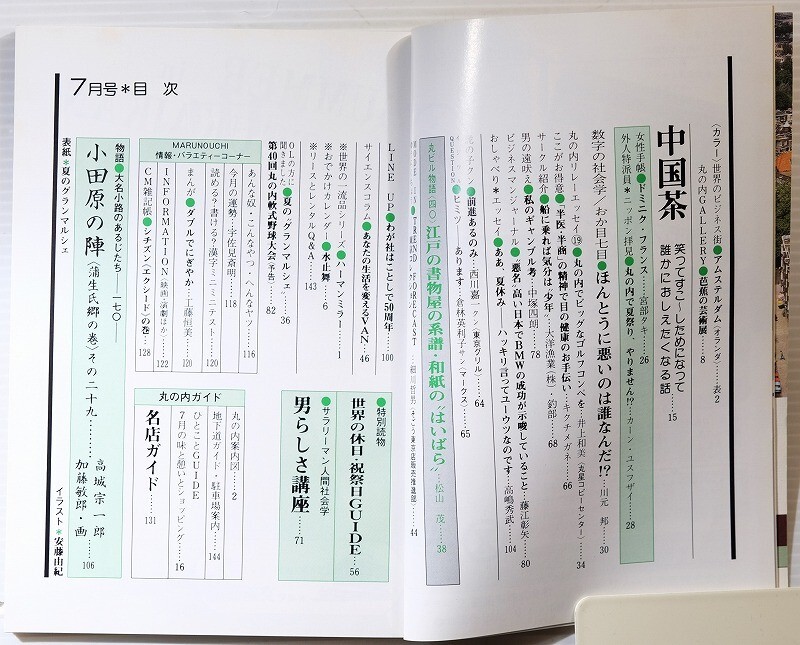 〈カラー〉世界のビジネス街●アムステルダム〈オランダ〉……表2
丸の内GALLERY●芭蕉の芸術展……8
中国茶
笑ってすご〜しためになって
誰かにおしえたくなる話……15
女性手帳●ドミニク・フランス……宮部タキ……26
外人特派員＊ニッポン拝見●丸の内で夏祭り、やりません!?……カーン・ユスフザイ……28
数字の社会学／おか目七目●ほんとうに悪いのは誰なんだ!?……川元 邦……30
丸の内リレーエッセイ⑲●丸の内でビッグなゴルフコンペを…井上和美〈丸星コピーセンター〉……34
ここがお得意●「半医・半商」の精神で目の健康のお手伝い……キクチメガネ……66
サークル紹介●船に乗れば気分は〝少年〟……大洋漁業(株)・釣部……68
男の遠吠え●私のギャンブル考……中塚四朗……78
ビジネスマンジャーナル●〝悪名〟高い日本でBMWの成功が示唆していること…藤江彰矢……80
おしゃべり＊エッセイ●ああ、夏休み ハッキリ言ってユーウツなのです…高嶋秀武……104
●前進あるのみ…西川嘉一クン〈東京グリル〉……64
QUESTION●ヒミツ あります…倉林英利子サン〈マークス〉……65
丸ビル物語〔四〇〕江戸の書物屋の系譜・和紙の〝はいばら〟……松山 茂……38
TREND FORECAST……細川哲男〈そごう東京店販売推進部〉……44
LINE UP●わが社はことしで50周年……100
サイエンスコラム●あなたの生活を変えるVAN……46
※世界の一流品シリーズ●ハーマンミラー……1
※おでかけカレンダー●水止舞……6
※リースとレンタルQ&A……143
OLの方に聞きました●夏の〝グランマルシェ〟……36
第40回丸の内軟式野球大会〈予告〉……82
●特別読物
世界の休日・祝祭日GUIDE……56
●サラリーマン人間社会学
男らしさ講座……71
MARUNOUCHI
情報・バラエティーコーナー
あんな奴・こんなやつ・へんなヤツ……116
今月の運勢…宇佐見斎明……118
読める？書ける？漢字ミニミニテスト……120
まんが●ダブルでにぎやか…工藤恒美……120
INFORMATION〈映画・演劇ほか〉……122
CM雑記帳●シチズン〈エクシード〉の巻……128
丸の内ガイド
丸の内案内図……2
地下道ガイド・駐車場案内……144
ひとことGUIDE
7月の味と憩いとショッピング……16
名店ガイド……131
7月号＊目 次
物語●大名小路のあるじたち――一七〇――
小田原の陣〈蒲生氏郷の巻〉その二十九……高城宗一郎
加藤敏郎・画……106
表紙＊夏のグランマルシェ
イラスト＊安藤由紀